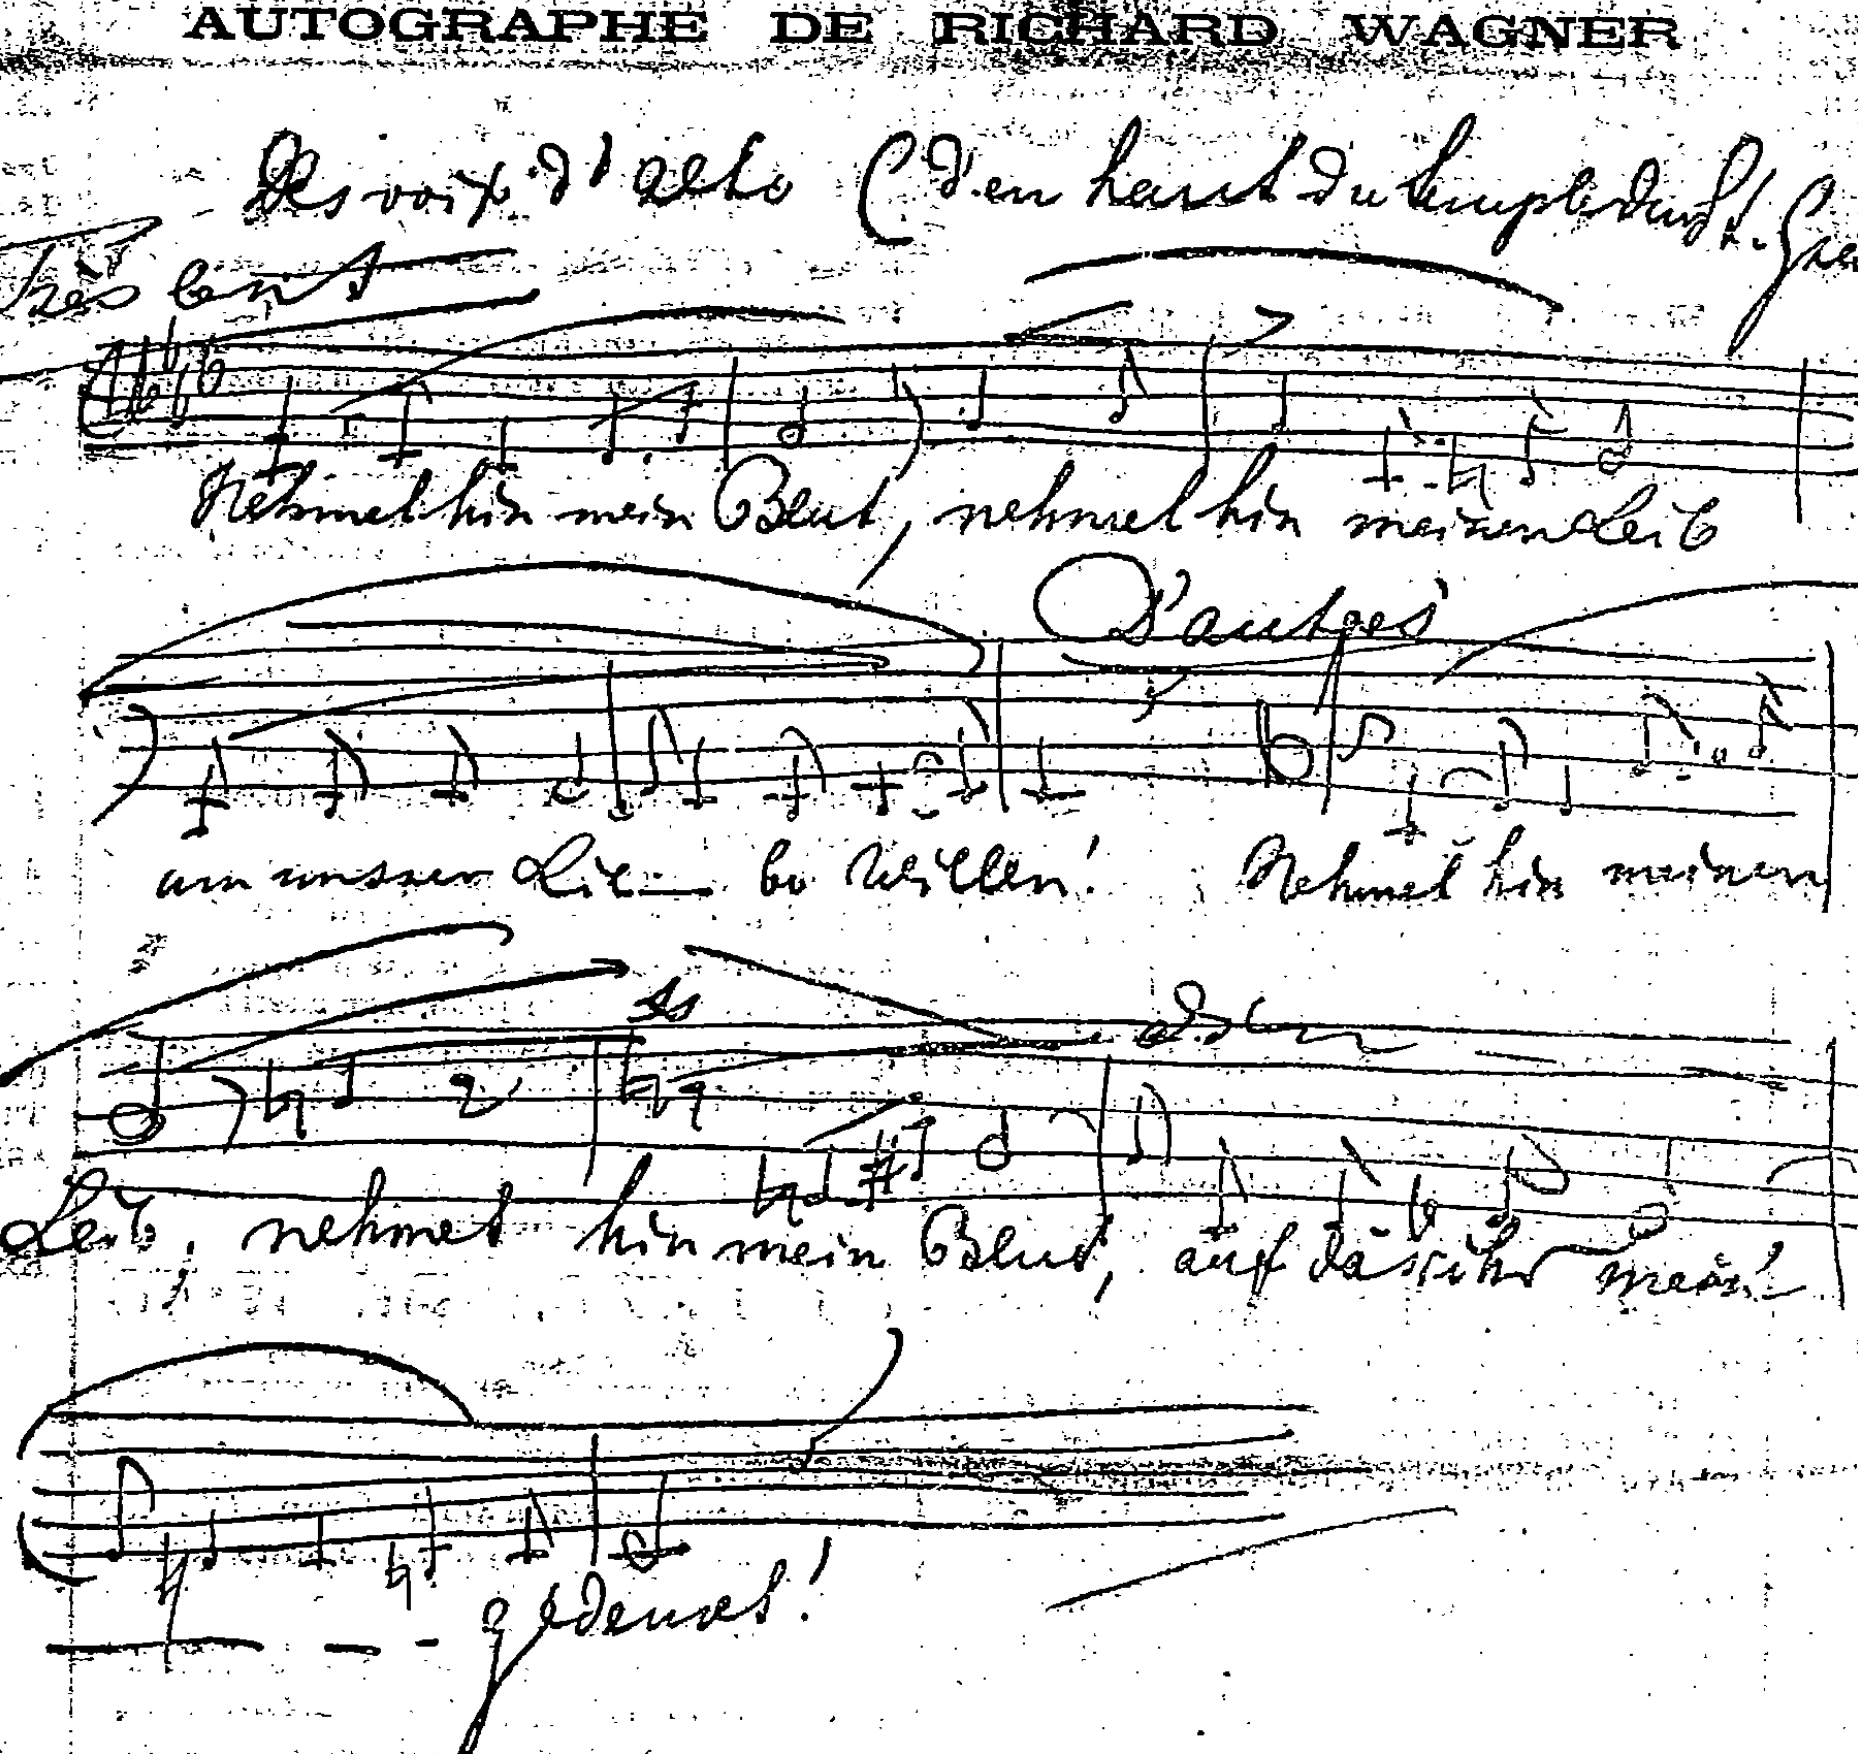 AUTOGRAPHE DE RICHARD WAGNER
Des voix d'alto (d'en haut du temple du St.
Très lent
Nehmet hin mein Blut, nehmet hin meinen Leib
D'autres
um unsrer Lie- be Willen! Nehmet hin meinen
Leib, nehmet hin mein Blut, auf dass ihr mein'
gedenket!